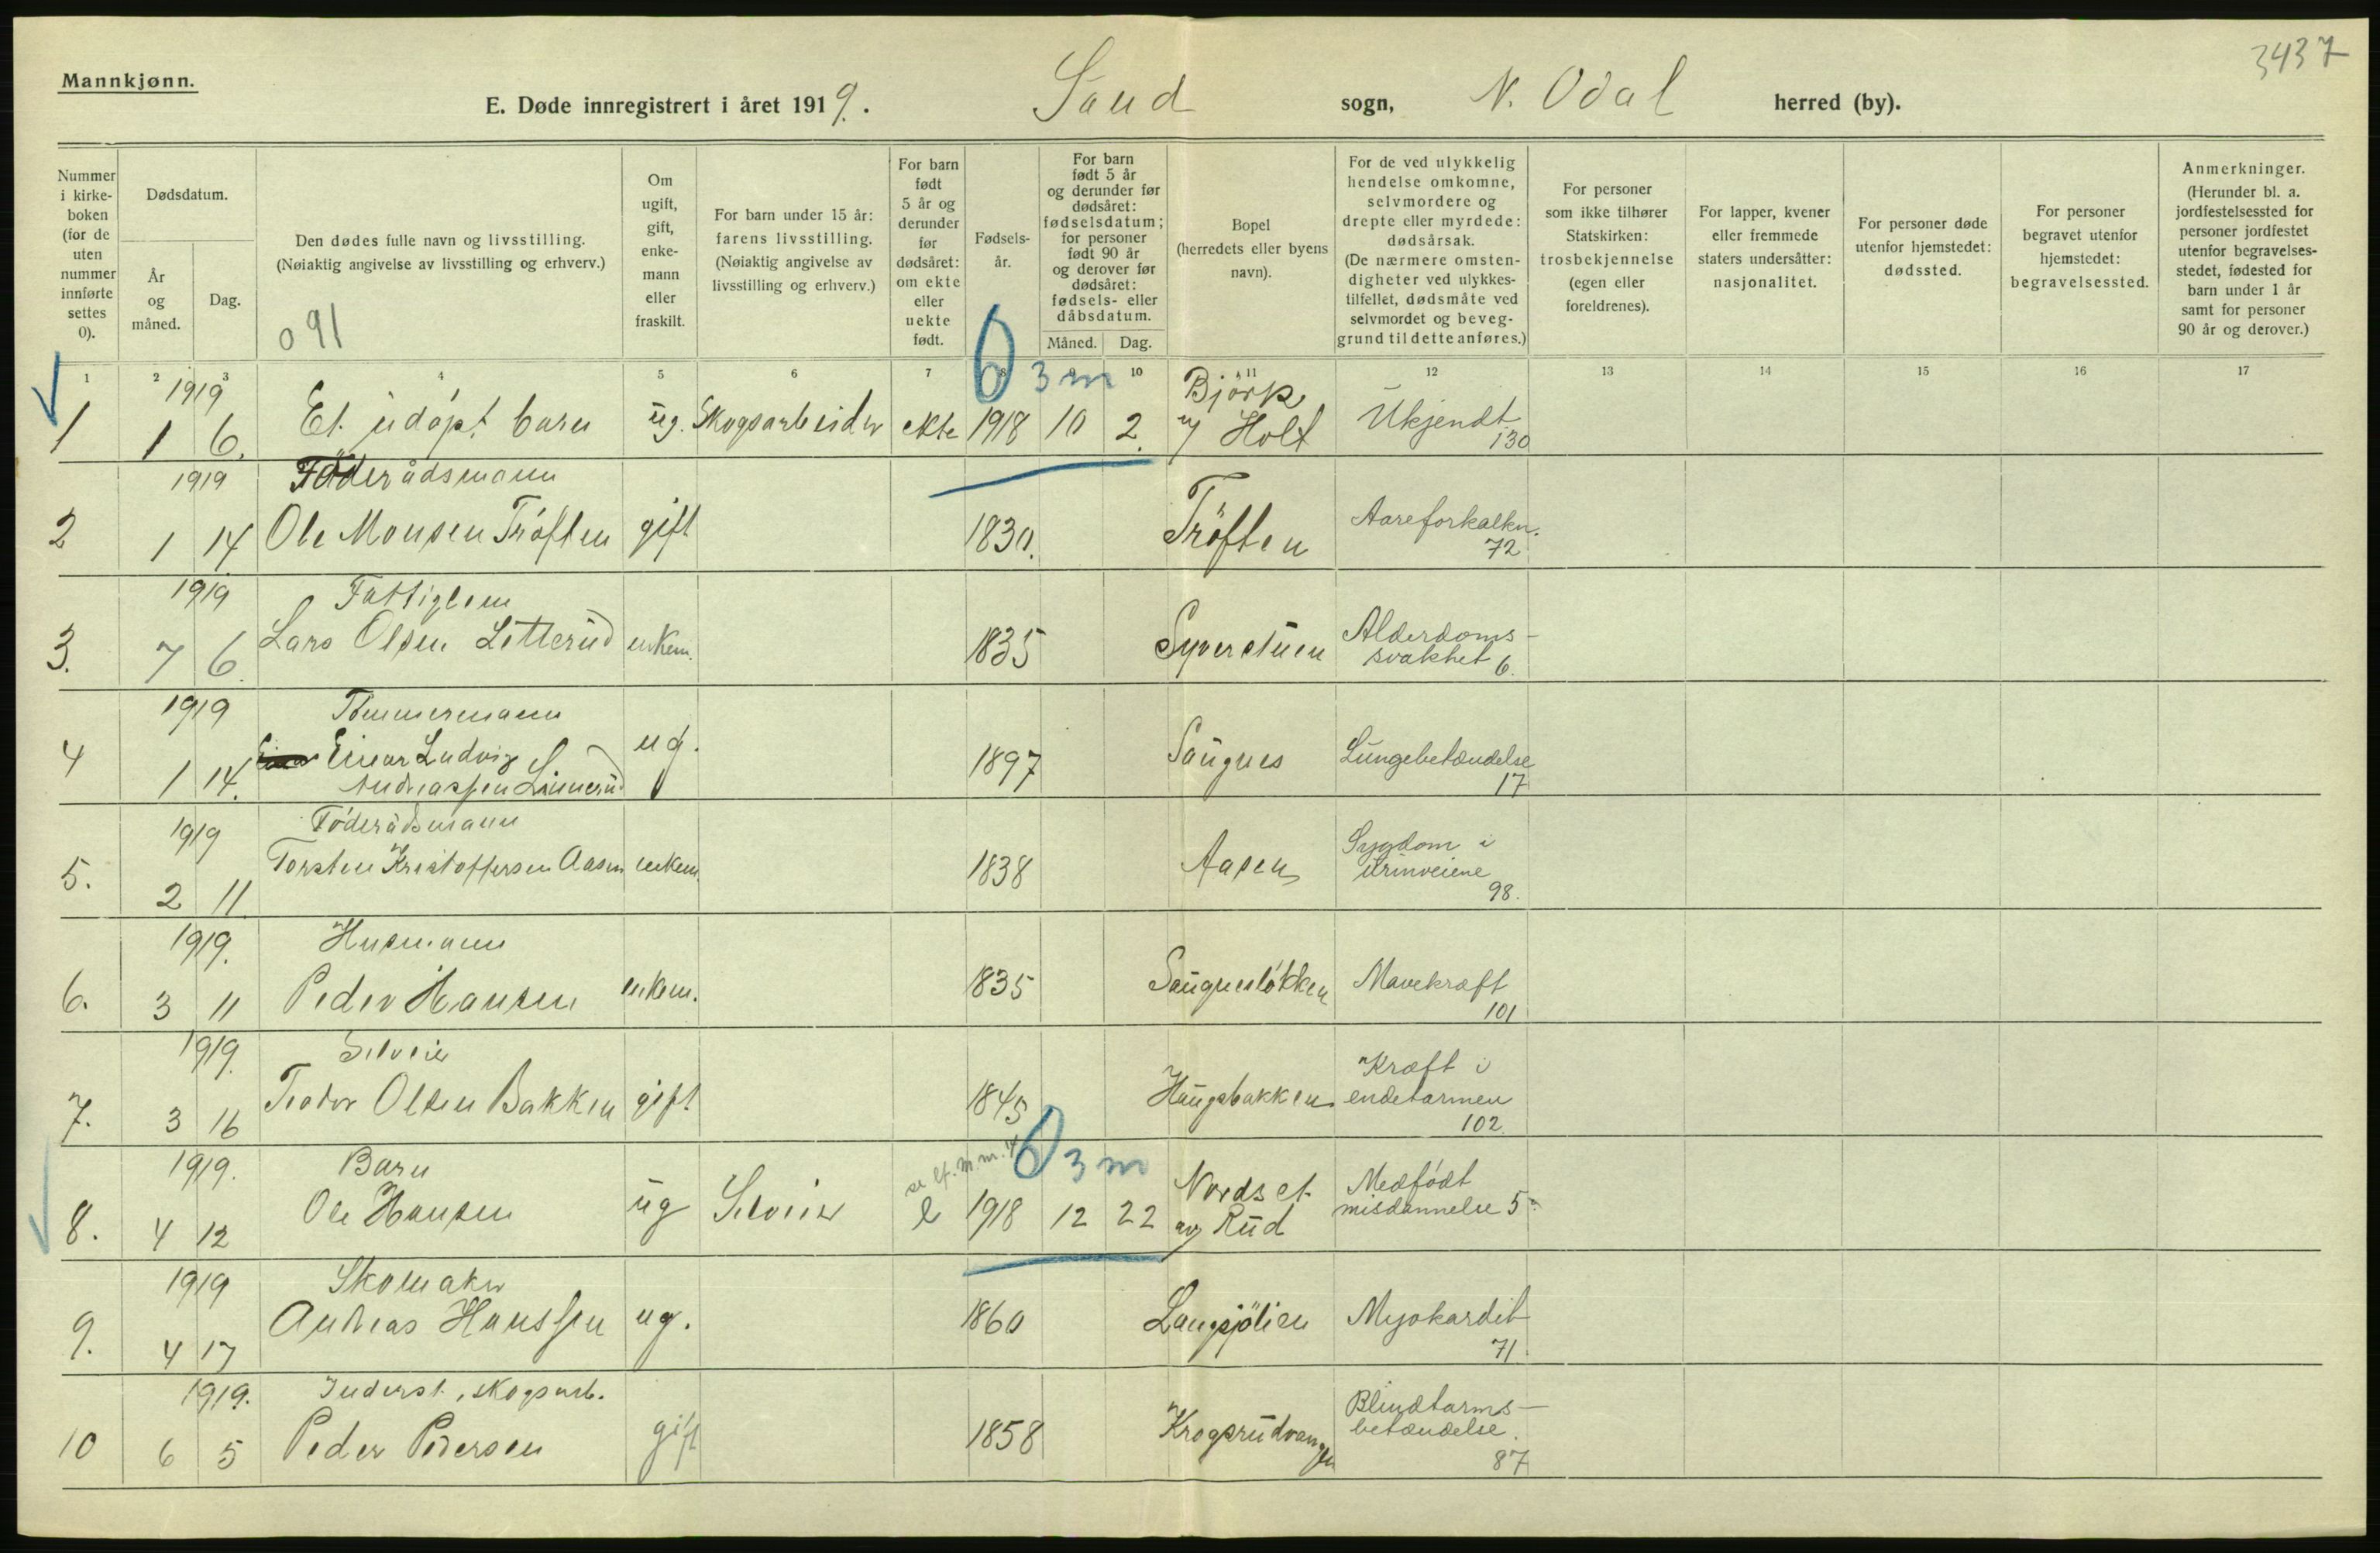 3437
Mannkjønn.
E. Døde innregistrert i året 1919. Sand sogn, N. Odal herred (by).
Nummer i kirke-boken (for de uten nummer innførte settes 0).
Dødsdatum.
År og måned.
Dag.
Den dødes fulle navn og livsstilling.
(Nøiaktig angivelse av livsstilling og erhverv.)
091
Om ugift, gift, enke-mann eller fraskilt.
For barn under 15 år: farens livsstilling.
(Nøiaktig angivelse av livsstilling og erhverv.)
For barn født 5 år og derunder før dødsåret: om ekte eller uekte født.
Fødsels-år.
For barn født 5 år og derunder før dødsåret: fødselsdatum; for personer født 90 år og derover før dødsåret: fødsels- eller dåbsdatum.
Måned.
Dag.
Bopel
(herredets eller byens navn).
For de ved ulykkelig hendelse omkomne, selvmordere og drepte eller myrdede: dødsårsak.
(De nærmere omsten-digheter ved ulykkes-tilfellet, dødsmåte ved selvmordet og beveg-grund til dette anføres.)
For personer som ikke tilhører Statskirken: trosbekjennelse (egen eller foreldrenes).
For lapper, kvener eller fremmede staters undersåtter: nasjonalitet.
For personer døde utenfor hjemstedet: dødssted.
For personer begravet utenfor hjemstedet: begravelsessted.
Anmerkninger.
(Herunder bl. a. jordfestelsessted for personer jordfestet utenfor begravelses-stedet, fødested for barn under 1 år samt for personer 90 år og derover.)
1 2 3 4 5 6 7 8 9 10 11 12 13 14 15 16 17
1919 3 m Björk
1 1 6. Et udöpt barn ug. Skogsarbeider ekte 1918 10 2. Holt Ukjendt
130
1919 Föderådsmann
2 1 14 Ole Monsen Tröften gift 1830. Tröften Aareforkalkn.
72
1919 Fattiglem
3. 7 6. Lars Olsen Letterud enkem. 1835 Syverstuen Alderdoms-
svakhet 6.
1919 Tömmermann
4 1 14. Einar Ludvig ug. 1897 Saugnes Lungebetændelse
Andreassen Linnerud 17
1919 Föderådsmann
5. 2 11 Torsten Kristoffersen Aasen enkem. 1838 Aasen Sygdom i
urinveiene
98.
1919. Husmann
6. 3 11 Peder Hansen enkem. 1835 Saugneslökken Mavekræft
101
1919. Selveier
7. 3 16 Teodor Olsen Bakken gift 1845 Haugsbakken Kræft i
endetarmen
102.
1919. Barn 3 m
8. 4 12 Ole Hansen ug Selveier e 1918 12 22 Nordset Medfödt
av Rud misdannelse 5.
1919 Skomaker
9. 4 17 Andreas Hanssen ug. 1860 Langsjölien Myokardit
71.
1919. Inderst, skogsarb.
10 6 5 Peder Pedersen gift 1858 Krogsrudvangen Blindtarms-
betændelse.
87